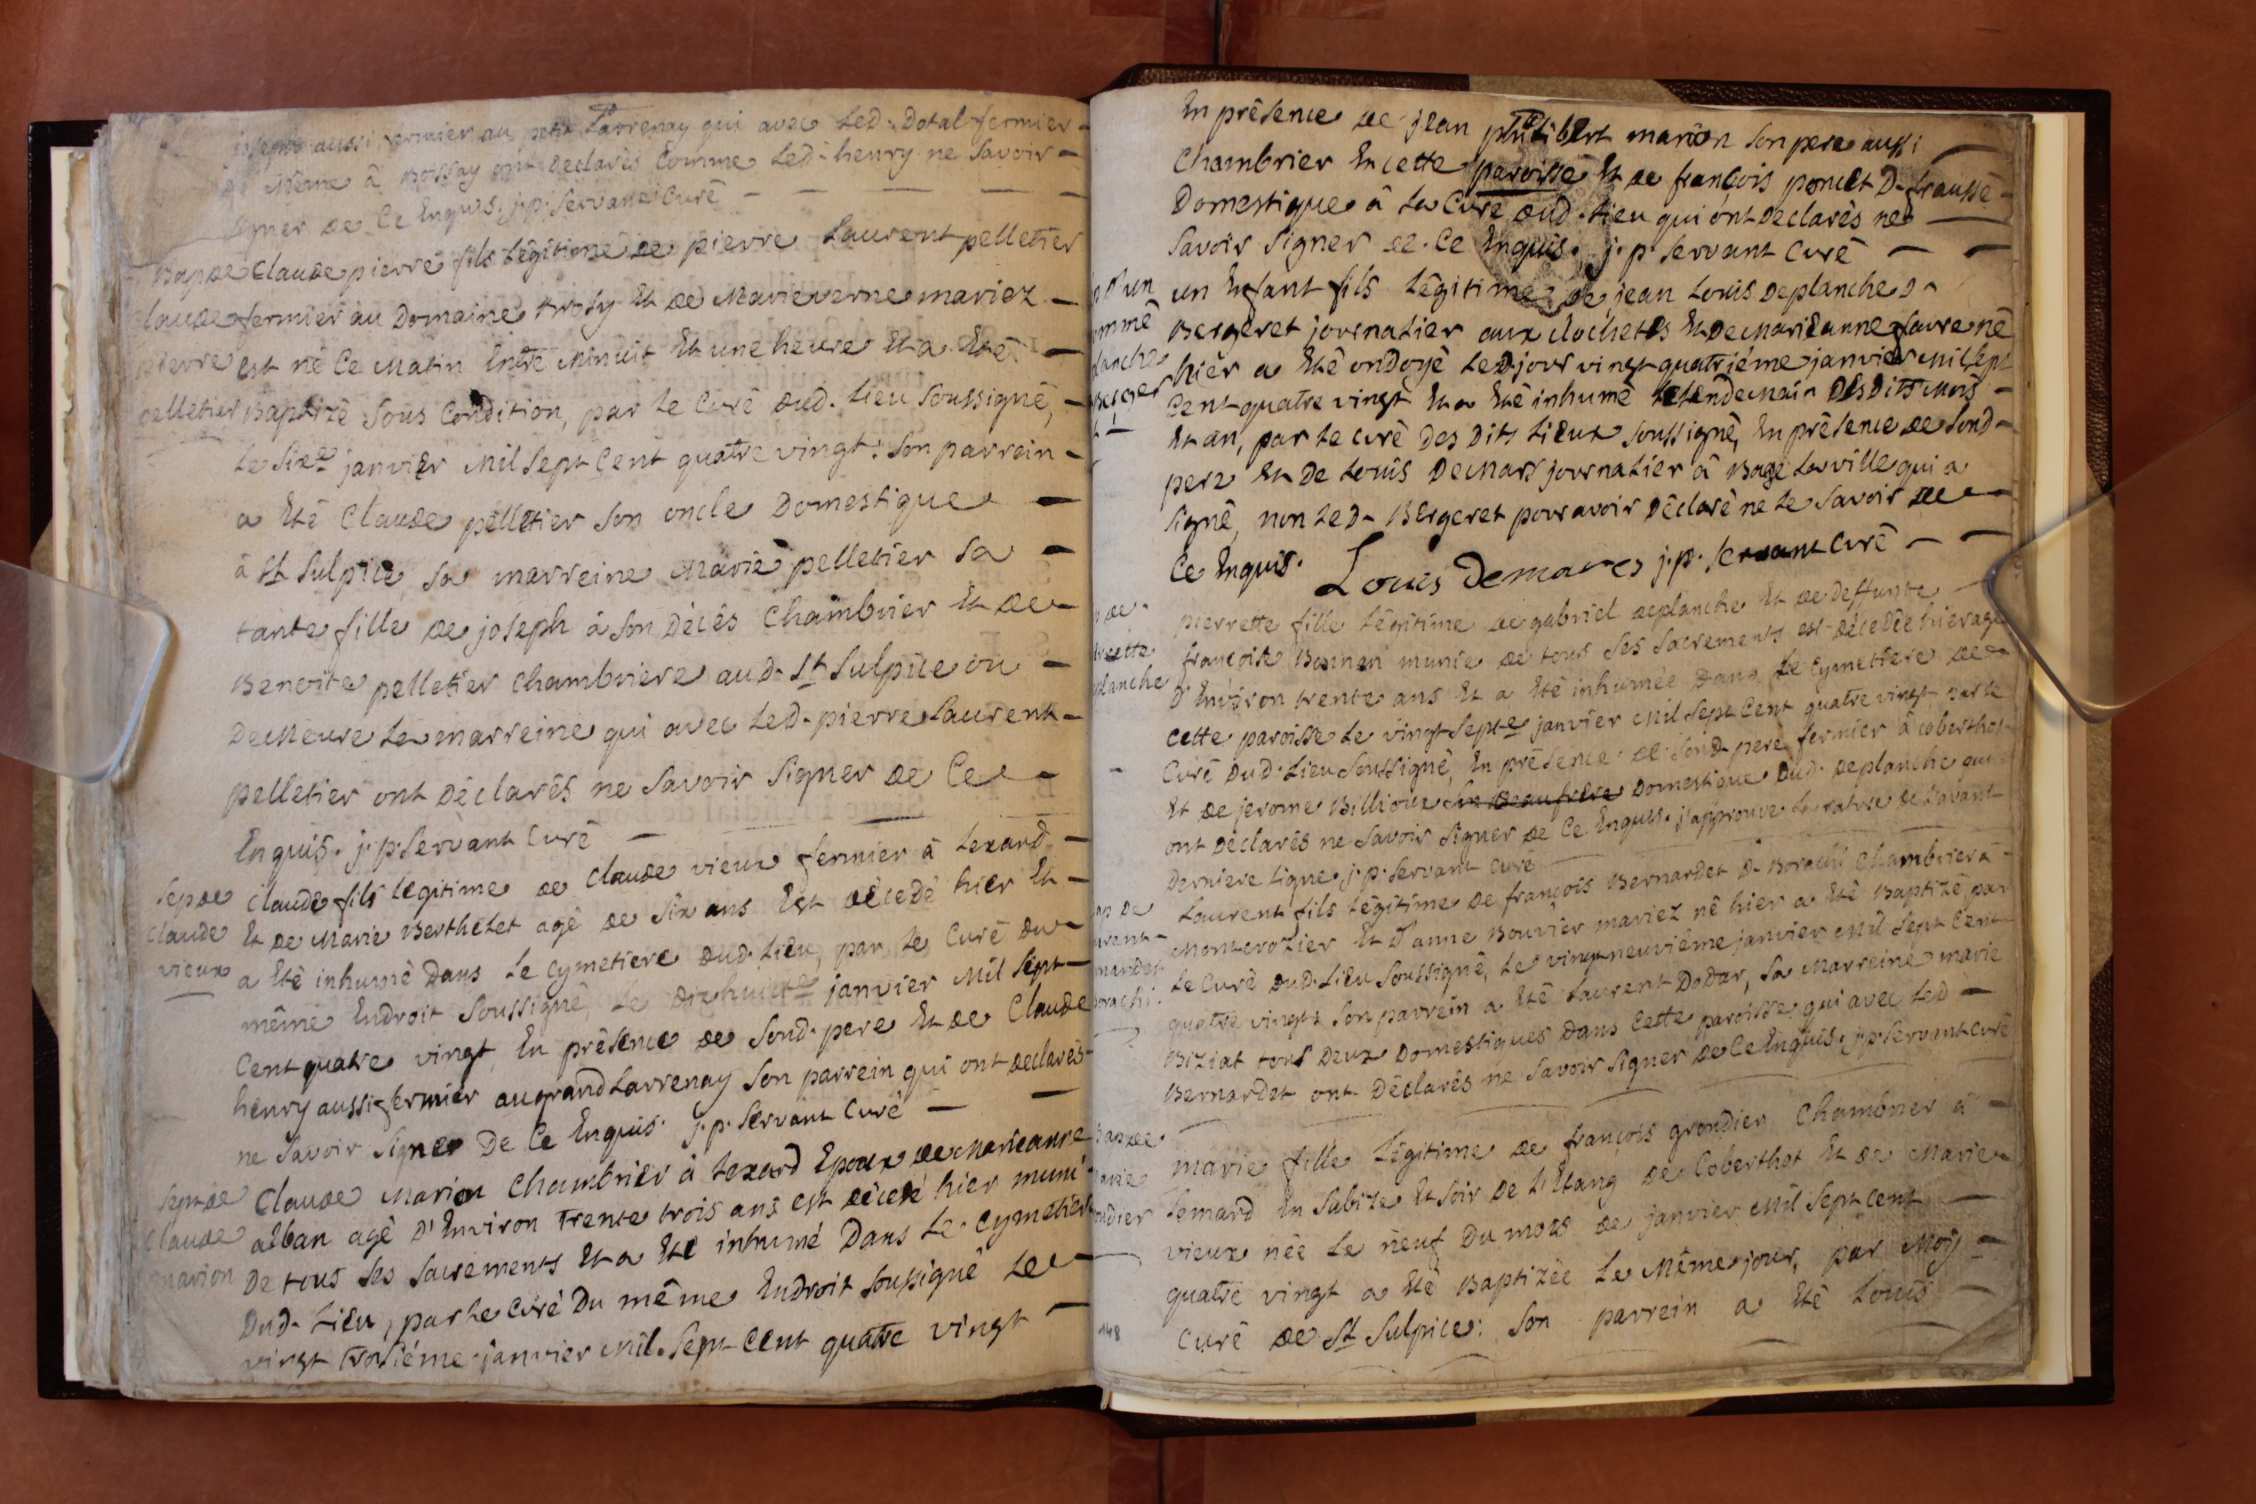 aussi fermier au petit Lavrenay qui avec led. Dotal fermier
de même â Bossay ont declarés comme led. henry ne savoir
signer de ce Enquis. j. p. servant curé
Bap de Claude pierre fils légitime de pierre Laurent pelletier
claude fermier au Domaine trosy Et de Marie verne mariez
pierre est né ce Matin Entre Minuit Et une heure Et a Eté
pelletier Baptizé sous condition, par le curé dud. Lieu soussigné,
le sixe janvier Mil sept Cent quatre vingt: son parrein
a Eté Claude pelletier son oncle Domestique
â St sulpice, sa marreine Marie pelletier sa
tante fille de joseph â son Décés Chambrier Et de
Benoite pelletier chambriere aud. St sulpice ou
Demeure la marreine qui avec led. pierre Laurent
pelletier ont Déclarés ne savoir signer de Ce
Enquis. j. p. servant curé
Sep de Claude fils legitime de Claude vieux fermier â Lexard
claude Et de Marie Berthelet agé de six ans Est décedé hier Et
vieux a Eté inhumé Dans le cymetiere dud. Lieu, par le curé du
même Endroit soussigné, le dixhuite janvier Mil sept
Cent quatre vingt, En présence de sond. pere Et de Claude
henry aussi fermier au grand Lavrenay son parrein qui ont declarés
ne savoir signer De Ce Enquis. j. p. servant curé
Sep de Claude Marion Chambrier â Lexard Epoux de Marieanne
claude alban agé D'Environ Trente trois ans est décedé hier muni
marion De tous ses sacrements Et a Eté inhumé Dans le cymetiere
Dud. Lieu, par le curé Du même Endroit soussigné le
vingt troisiéme janvier Mil sept cent quatre vingt
En présence de jean philibert marion son pere aussi
Chambrier En cette paroisse Et de françois poncet D. frausse
Domestique â la Cure dud. Lieu qui ont Declarés ne
savoir signer de Ce Enquis. j. p. servant curé
un Enfant fils légitime de jean Louis Deplanche D.
Bergeret journalier aux clochetes Et de Marieanne favre né
hier a Eté ondoyé led. jour vingt quatriéme janvier Mil sept
Cent quatre vingt Et a Eté inhumé le lendemain Desdits Mois
Et an, par le curé des dits Lieux soussigné, En présence de sond.
pere Et de Louis Demars journalier â Bagé la ville qui a
signé, non led. Bergeret pour avoir Déclaré ne le savoir de
Ce Enquis. Loues Demares j. p. servant curé
pierrette fille légitime de gabriel deplanche Et de Deffunte
françoise munie de tous ses sacrements est décedée hier agée
planche D'Environ trente ans Et a Eté inhumée Dans le cymetiere de
cette paroisse le vingt septe janvier Mil sept Cent quatre vingt par le
Curé Dud. Lieu soussigné, En présence de sond. pere fermier â coberthot
Et de jerome Billioux son Beaufrere Domestique Dud. deplanche qui
ont Déclarés ne savoir signer de Ce Enquis. j'approuve la rature de l'avant
Derniere Ligne j. p. servant curé
Laurent fils légitime De françois Bernardet D. Borachi Chambrier â
Montcrozier Et D'anne Bouvier mariez né hier a Eté Baptizé par
le Curé Dud. Lieu soussigné, le vingt neuviéme janvier Mil sept cent
quatre vingt son parrein a Eté Laurent Dodar, sa Marreine marie
Biziat tous Deux Domestiques Dans cette paroisse qui avec led.
Bernardet ont Déclarés ne savoir signer De Ce Enquis. j. p. servant curé
marie fille légitime de françois grondier Chambrier â
Lemard En Sabize Et soir De L'Etang de Coberthot Et de Marie
vieux née le neuf Du mois de janvier Mil sept cent
quatre vingt a Eté Baptizée le Même jour, par Moy
Curé de St sulpice: son parrein a Eté Louis
148